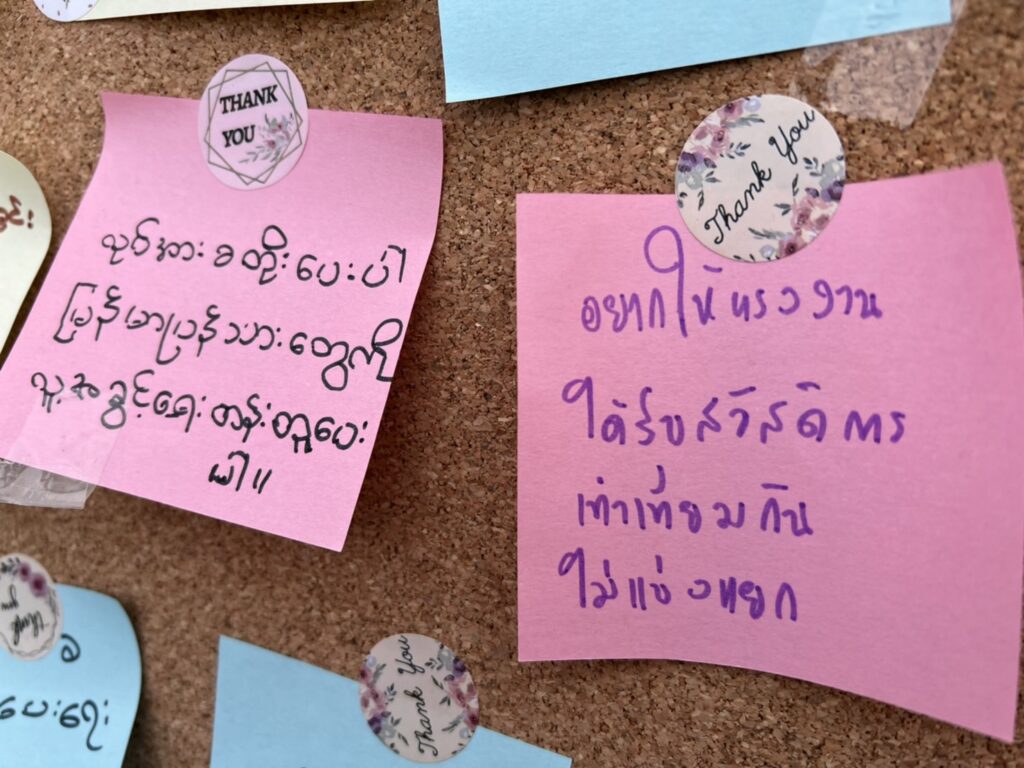 THANK
YOU
လုပ်အားခတိုးပေးပါ
မြန်မာပြန်သားတွေကို
လူ့အခွင့်ရေးတန်းတူပေး
ပါ။
Thank You
อยากให้แรงงาน
ได้รับสวัสดิการ
เท่าเทียมกัน
ไม่แบ่งแยก
Thank
you
ပေးရေး
Thank You